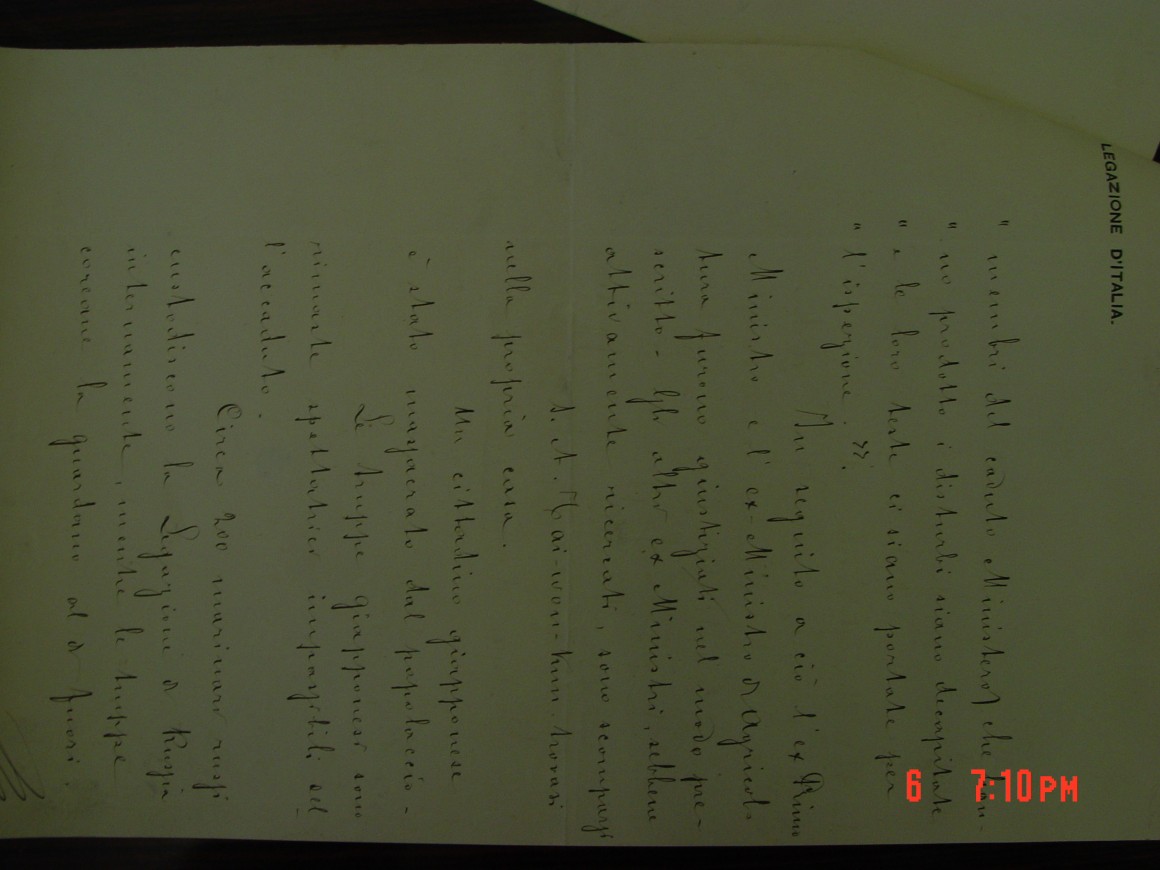 LEGAZIONE D'ITALIA.
" membri del caduto Ministero che han-
" no prodotto i disturbi siano decapitate
" e le loro teste ci siano portate per
" l'ispezione. "".
In seguito a ciò l'ex Primo
Ministro e l'ex-Ministro di Agricol-
tura furono giustiziati nel modo pre-
scritto - Gli altri ex Ministri, sebbene
attivamente ricercati, sono scomparsi
S. A. Tai-won-kun trovasi
nella propria casa.
Un cittadino giapponese
è stato massacrato dal popolaccio -
Le truppe giapponesi sono
rimaste spettatrici impassibili del-
l'accaduto.
Circa 200 marinari russi
custodiscono la Legazione di Russia
internamente, mentre le truppe
coreane la guardano al di fuori.
6 7:10 PM